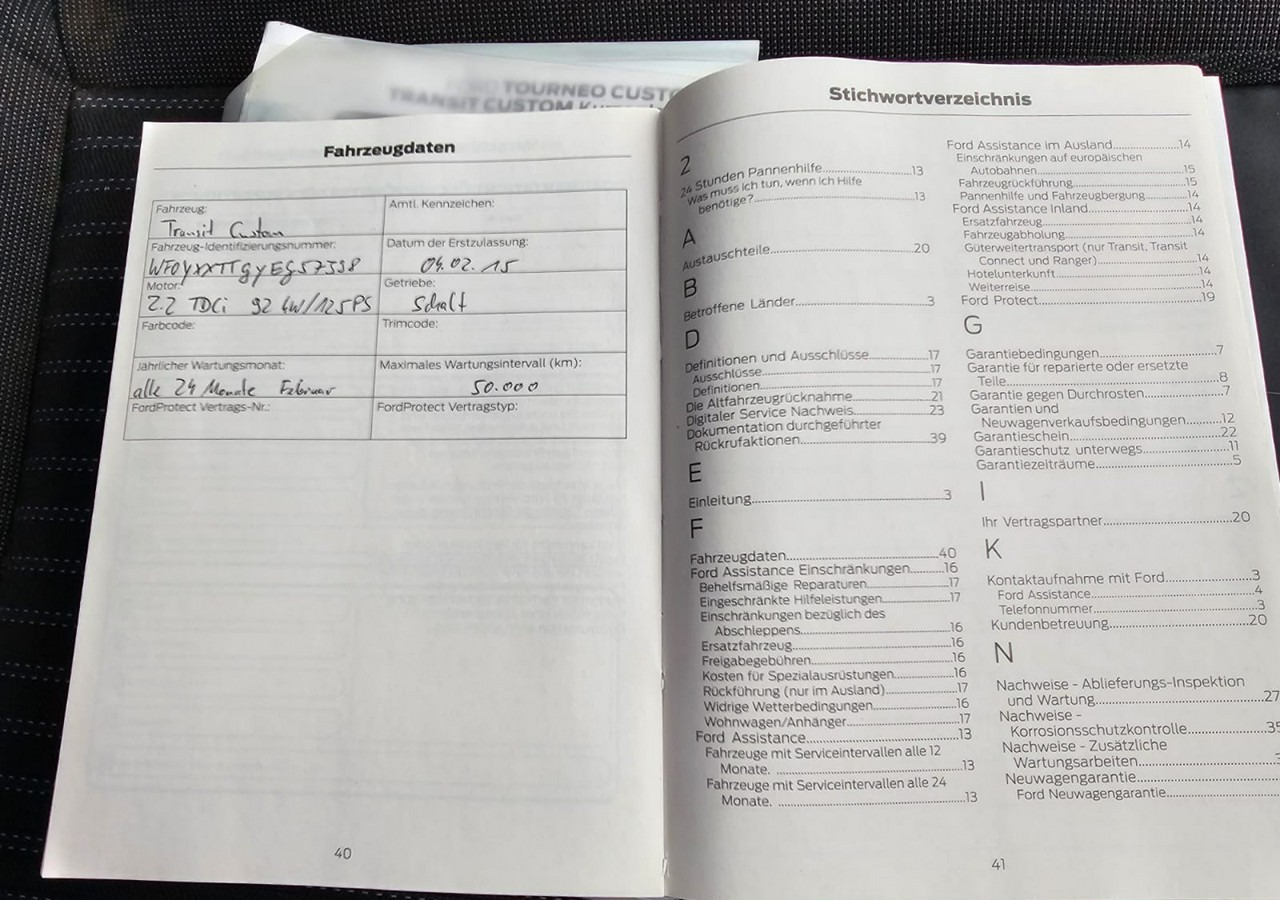 TOURNEO CUSTO
TRANSIT CUSTOM
Fahrzeugdaten
Fahrzeug:
Transit Custom
Amtl. Kennzeichen:
Fahrzeug-Identifizierungsnummer:
WF0YXXTTGYEG57398
Datum der Erstzulassung:
04.02.15
Motor:
2.2 TDCi 92 kW/125PS
Getriebe:
Schalt
Farbcode:
Trimcode:
Jährlicher Wartungsmonat:
alle 24 Monate Februar
Maximales Wartungsintervall (km):
50.000
FordProtect Vertrags-Nr.:
FordProtect Vertragstyp:
40
Stichwortverzeichnis
2
24 Stunden Pannenhilfe.....13
Was muss ich tun, wenn ich Hilfe
benötige?.....13
A
Austauschteile.....20
B
Betroffene Länder.....3
D
Definitionen und Ausschlüsse.....17
Ausschlüsse.....17
Definitionen.....17
Die Altfahrzeugrücknahme.....21
Digitaler Service Nachweis.....23
Dokumentation durchgeführter
Rückrufaktionen.....39
E
Einleitung.....3
F
Fahrzeugdaten.....40
Ford Assistance Einschränkungen.....16
Behelfsmäßige Reparaturen.....17
Eingeschränkte Hilfeleistungen.....17
Einschränkungen bezüglich des
Abschleppens.....16
Ersatzfahrzeug.....16
Freigabegebühren.....16
Kosten für Spezialausrüstungen.....16
Rückführung (nur im Ausland).....17
Widrige Wetterbedingungen.....16
Wohnwagen/Anhänger.....17
Ford Assistance.....13
Fahrzeuge mit Serviceintervallen alle 12
Monate. .....13
Fahrzeuge mit Serviceintervallen alle 24
Monate. .....13
Ford Assistance im Ausland.....14
Einschränkungen auf europäischen
Autobahnen.....15
Fahrzeugrückführung.....15
Pannenhilfe und Fahrzeugbergung.....14
Ford Assistance Inland.....14
Ersatzfahrzeug.....14
Fahrzeugabholung.....14
Güterweitertransport (nur Transit, Transit
Connect und Ranger).....14
Hotelunterkunft.....14
Weiterreise.....14
Ford Protect.....19
G
Garantiebedingungen.....7
Garantie für reparierte oder ersetzte
Teile.....8
Garantie gegen Durchrosten.....7
Garantien und
Neuwagenverkaufsbedingungen.....12
Garantieschein.....22
Garantieschutz unterwegs.....11
Garantiezeiträume.....5
I
Ihr Vertragspartner.....20
K
Kontaktaufnahme mit Ford.....3
Ford Assistance.....4
Telefonnummer.....3
Kundenbetreuung.....20
N
Nachweise - Ablieferungs-Inspektion
und Wartung.....27
Nachweise -
Korrosionsschutzkontrolle.....35
Nachweise - Zusätzliche
Wartungsarbeiten.....3
Neuwagengarantie.....
Ford Neuwagengarantie.....
41